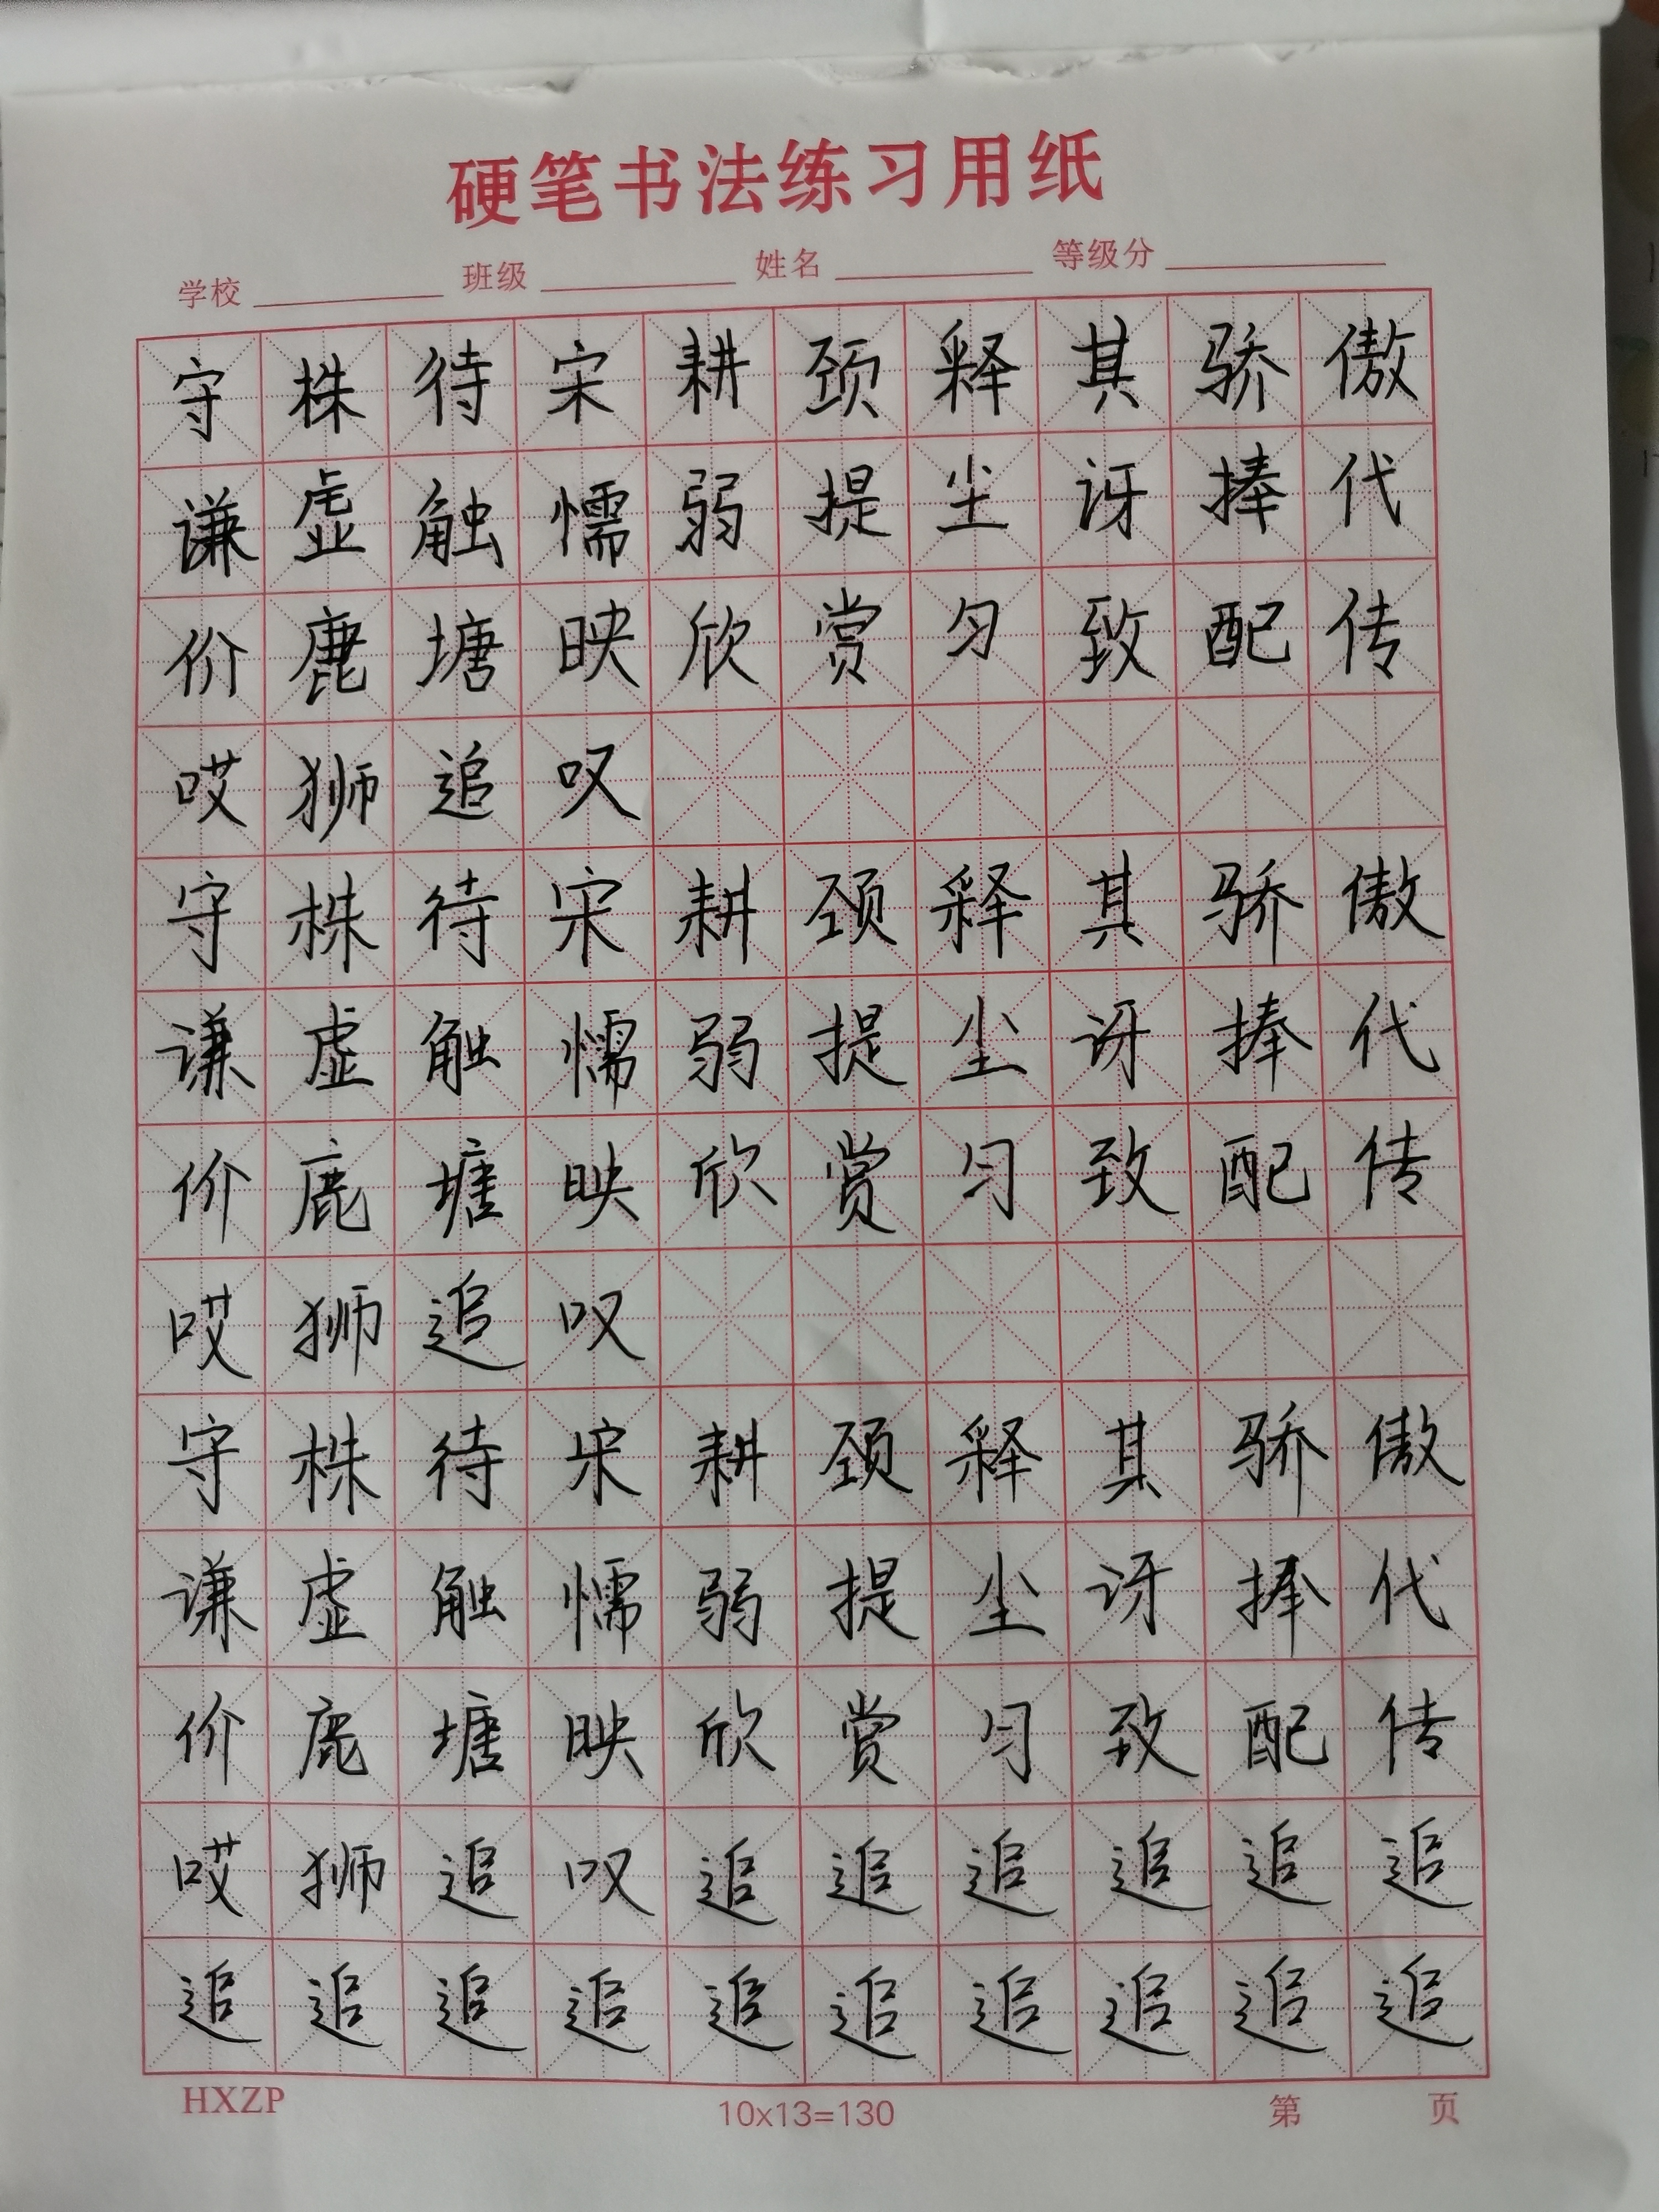 硬笔书法练习用纸
学校 班级 姓名 等级分
守株待宋耕颈释其骄傲
谦虚触懦弱提尘讶捧代
价鹿塘映欣赏匀致配传
哎狮追叹
守株待宋耕颈释其骄傲
谦虚触懦弱提尘讶捧代
价鹿塘映欣赏匀致配传
哎狮追叹
守株待宋耕颈释其骄傲
谦虚触懦弱提尘讶捧代
价鹿塘映欣赏匀致配传
哎狮追叹追追追追追追
追追追追追追追追追追
HXZP 10x13=130 第 页